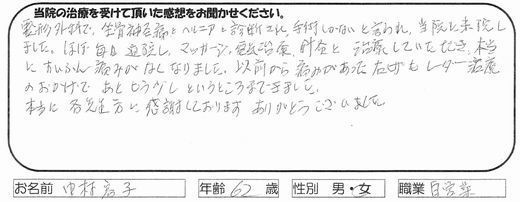 当院の治療を受けて頂いた感想をお聞かせください。
整形外科で、坐骨神経痛とヘルニアと診断され、手術しかないと言われ、当院に来院し
ました。ほぼ毎日通院し、マッサージ、電気治療、針灸と治療していただき、本当
にずいぶん痛みがなくなりました。以前から痛みがあった左ヒザもレーザー治療
のおかげであともう少しというところまできました。
本当に 先生方に感謝しております ありがとうございました
お名前 中村 子 年齢 62 歳 性別 男・女 職業 自営業